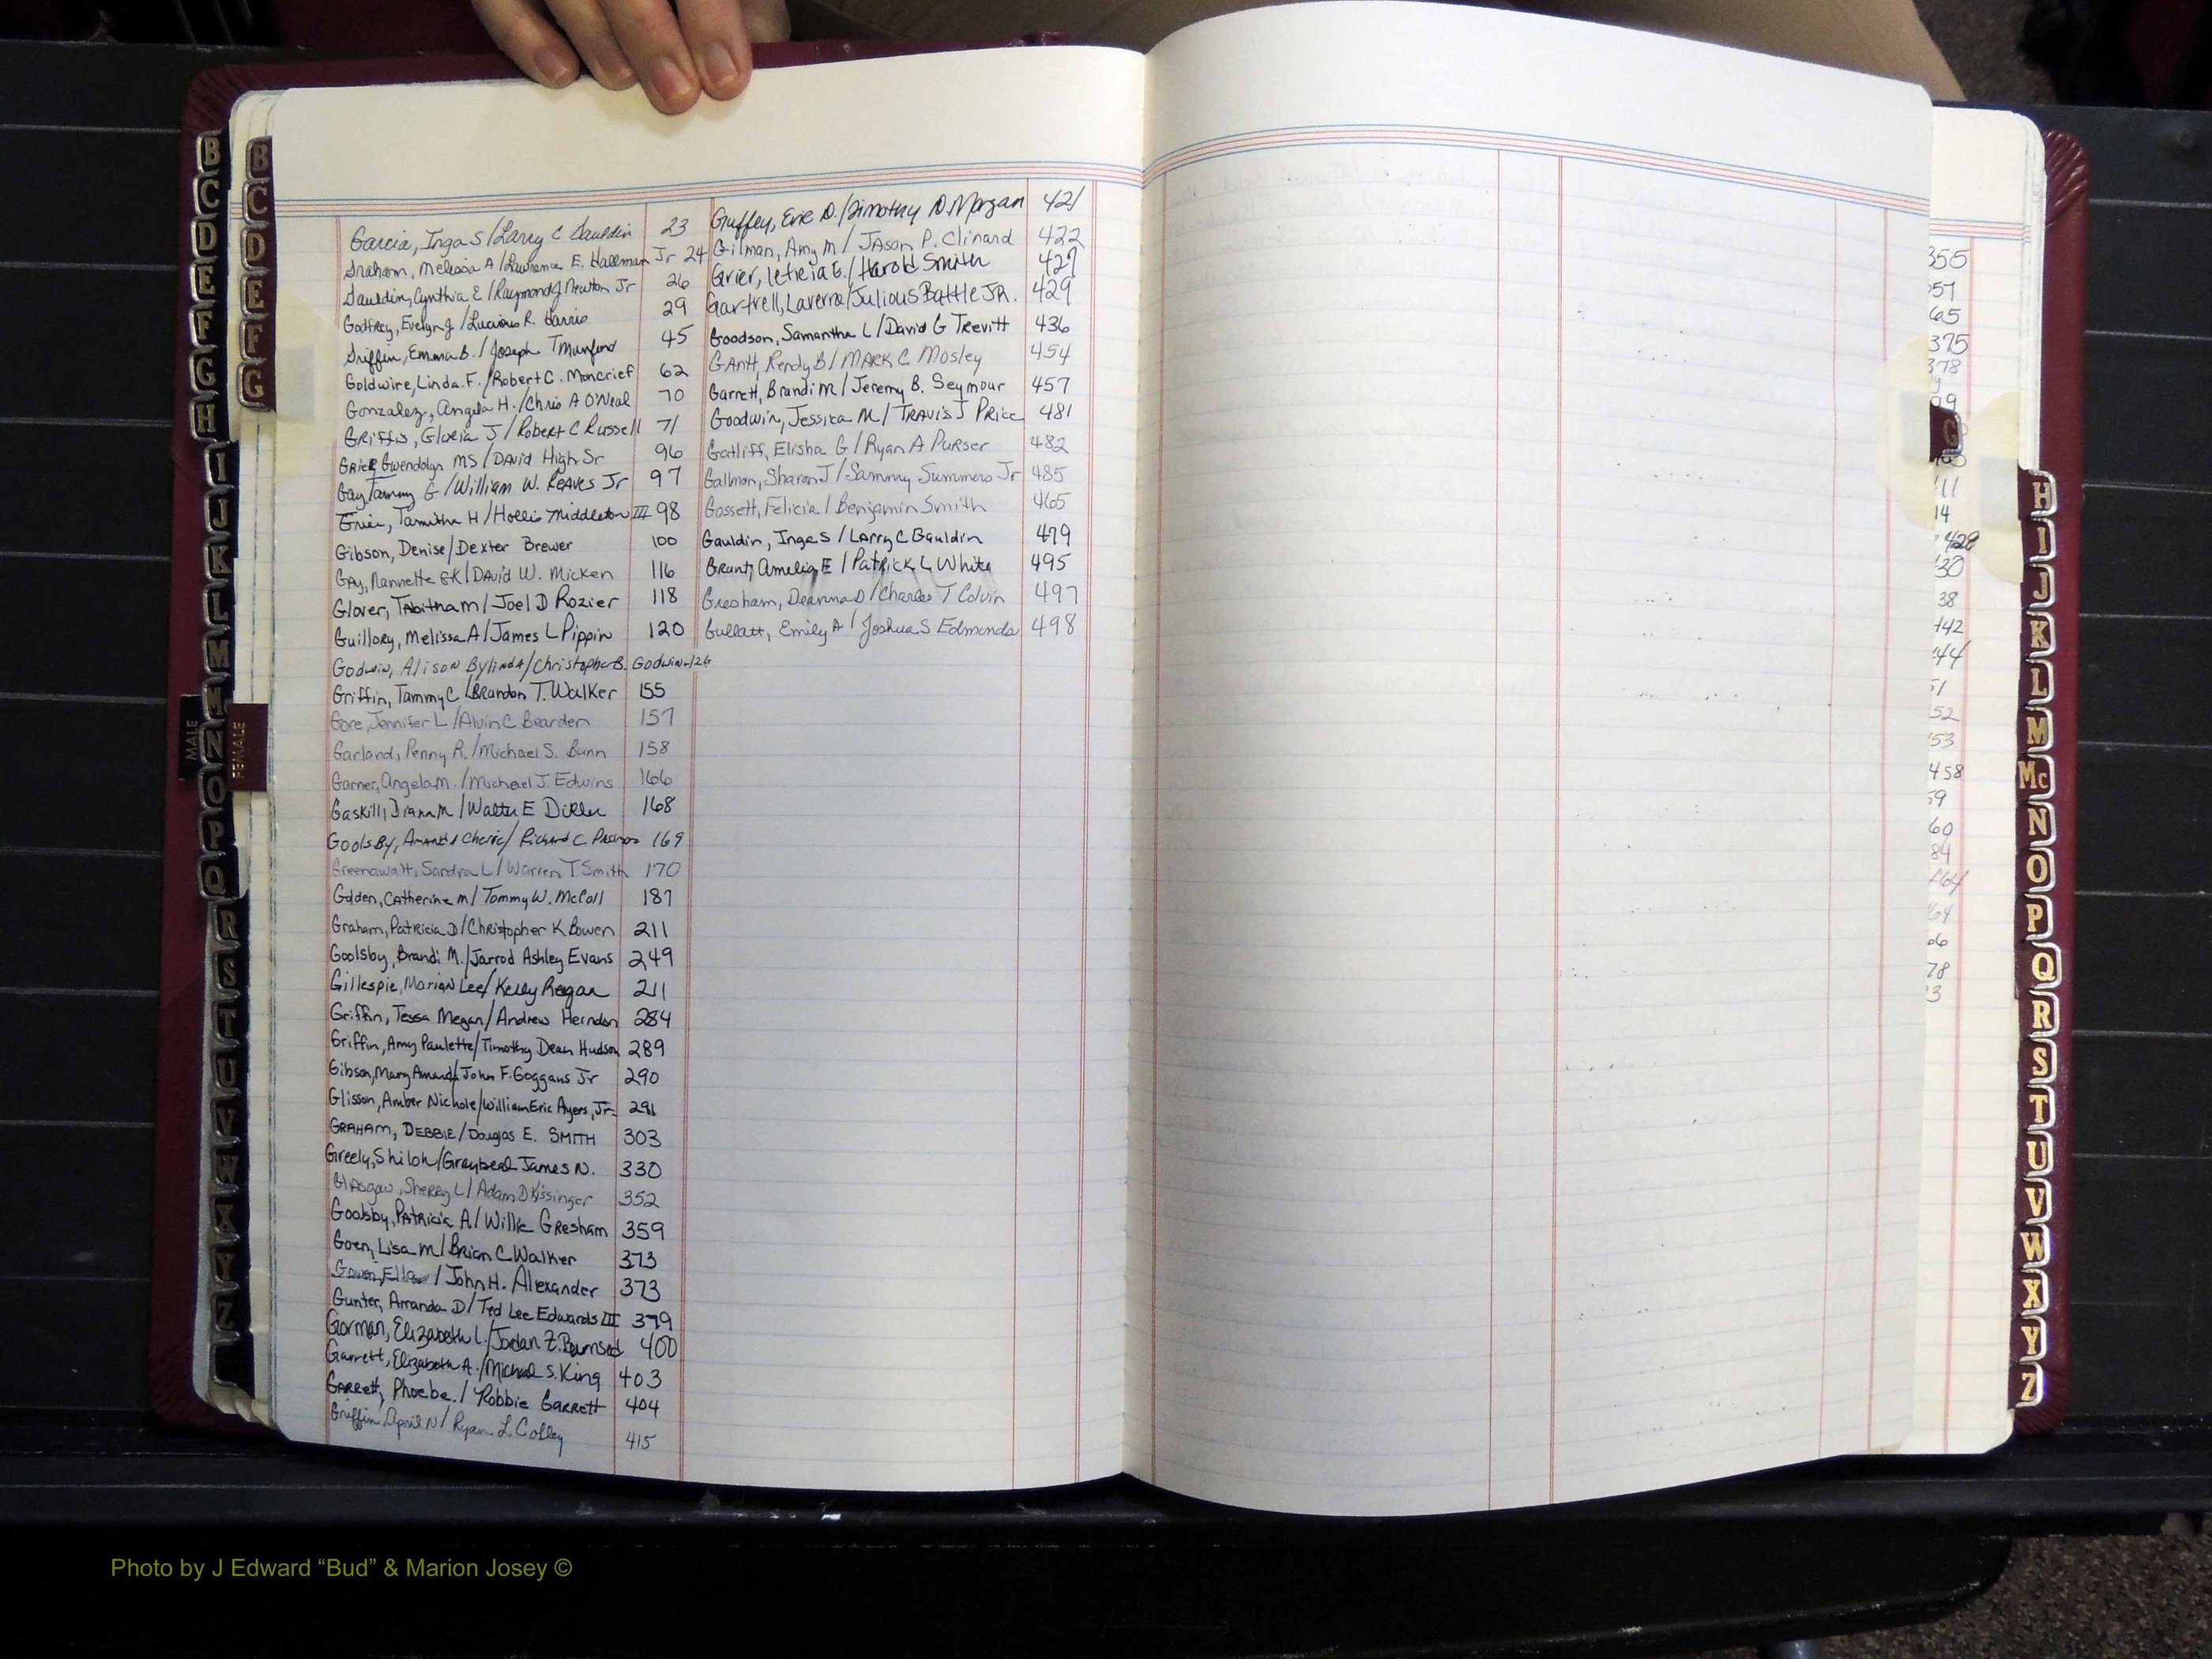 Garcia, Inga S/Larry C Gauldin 23
Graham, Melissa A/Lawrence E. Hallman Jr 24
Gauldin, Cynthia E/Raymond J Newton Jr 26
Godfrey, Evelyn J/Lucious R. Harris 29
Griffin, Emma B./Joseph T Munford 45
Goldwire, Linda. F./Robert C. Moncrief 62
Gonzalez, Angela H./Chris A O'Neal 70
GRiffis, Gloria J/Robert C Russell 71
Grier, Gwendolyn MS/David High Sr 96
Gay, Tammy G/William W. Reaves Jr 97
Grier, Tamitha H/Hollis Middleton III 98
Gibson, Denise/Dexter Brewer 100
Gay, Nannette GK/David W. Micken 116
Glover, Tabitha M/Joel D Rozier 118
Guillory, Melissa A/James L Pippin 120
Godwin, Alison Bylinda/Christopher B. Godwin-126
Griffin, Tammy C/Brandon T. Walker 155
Gore, Jennifer L/Alvin C Bearden 157
Garland, Penny R./Michael S. Bunn 158
Garner, Angela M./Michael J. Edwins 166
Gaskill, Diana M/Walter E 168
GoolsBy, Amanda Cherie/Richard C 169
Greenawalt, Sandra L/Warren T Smith 170
Golden, Catherine M/Tommy W. McColl 187
Graham, Patricia D/Christopher K Bowen 211
Goolsby, Brandi M./Jarrod Ashley Evans 249
Gillespie, Marion Lee/Kelly Reagan 211
Griffin, Tessa Megan/Andrew Herndon 284
Griffin, Amy Paulette/Timothy Dean Hudson 289
Gibson, Mary Amanda/John F. Goggans Jr 290
Glisson, Amber Nichole/William Eric Ayers, Jr. 291
GRAHAM, DEBBIE/Douglas E. SMITH 303
Greely, Shiloh/Graybeal James N. 330
Glasgow, Sherry L/Adam D Kissinger 352
Goolsby, Patricia A./Willie Gresham 359
Goen, Lisa M/Brian C Walker 373
Gowen, Ella/John H. Alexander 373
Gunter, Amanda D/Ted Lee Edwards III 379
Gorman, Elizabeth L./Jordan Z. Burnsed 400
Garrett, Elizabeth A./Michael S. King 403
Garrett, Phoebe./Robbie Garrett 404
Griffin, April N/Ryan L. Colley 415
Guffey, Erie D./Timothy D. Morgan 421
Gilman, Amy M/Jason P. Clinard 422
Grier, Leticia E./Harold Smith 427
Gartrell, Laverra/Julious Battle JR. 429
Goodson, Samantha L/David G Trevitt 436
GAntt, Rendy B/MARK C Mosley 454
Garrett, Brandi M/Jeremy B. Seymour 457
Goodwin, Jessica M/Travis J Price 481
Gatliff, Elisha G/Ryan A Purser 482
Gallmon, Sharon J/Sammy Summers Jr 485
Gossett, Felicia/Benjamin Smith 465
Gauldin, Inga S/Larry C Gauldin 479
Grunt, Amelia E/Patrick L White 495
Gresham, Deanna D/Charles T Colvin 497
Gullatt, Emily A/Joshua S Edmonds 498
B
C
D
E
F
G
H
I
J
K
L
M
N
O
P
Q
R
S
T
U
V
W
X
Y
Z
B
C
D
E
F
G
MALE
FEMALE
G
H
I
J
K
L
M
Mc
N
O
P
Q
R
S
T
U
V
W
X
Y
Z
355
375
378
428
442
458
Photo by J Edward “Bud” & Marion Josey ©